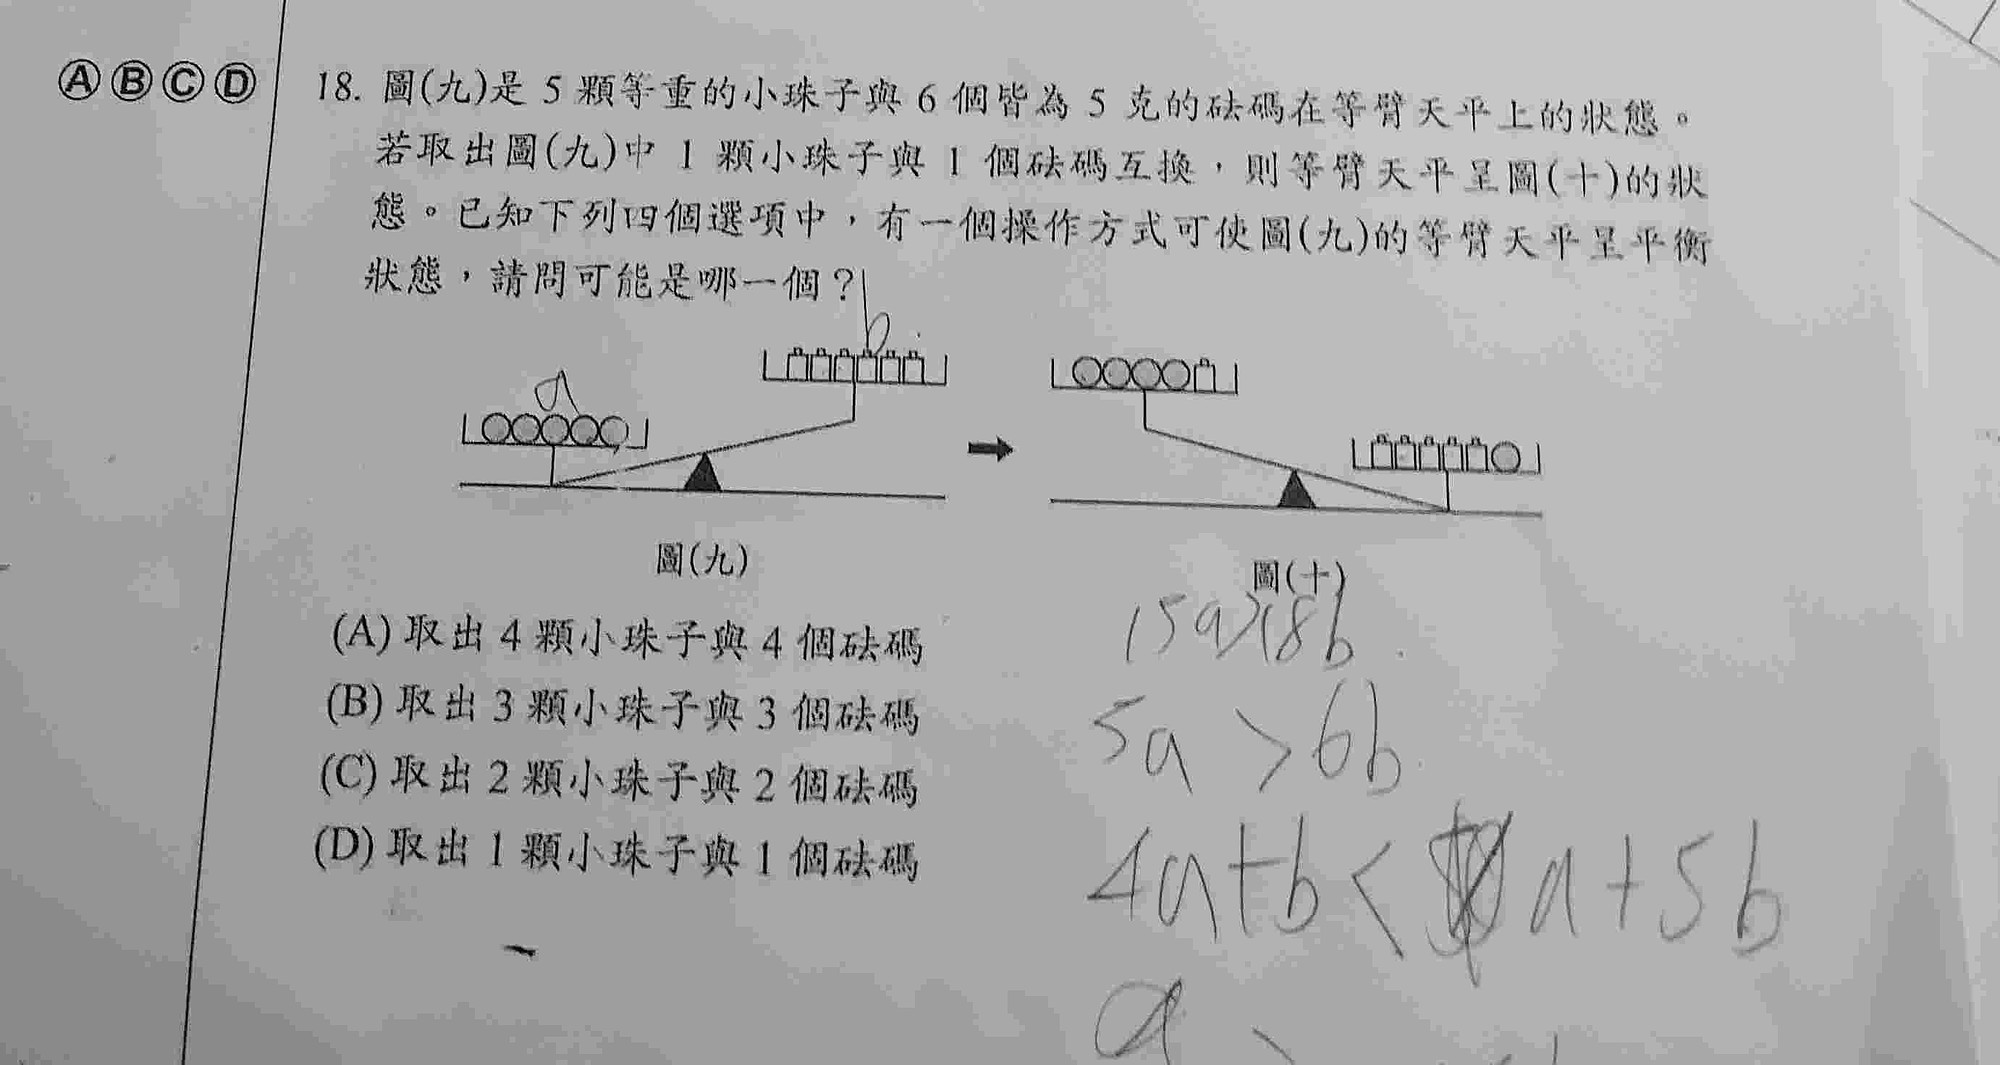 ⒶⒷⒸⒹ 18. 圖(九)是 5 顆等重的小珠子與 6 個皆為 5 克的砝碼在等臂天平上的狀態。
若取出圖(九)中 1 顆小珠子與 1 個砝碼互換，則等臂天平呈圖(十)的狀
態。已知下列四個選項中，有一個操作方式可使圖(九)的等臂天平呈平衡
狀態，請問可能是哪一個？
b
a
圖(九)
圖(十)
15a>18b
(A) 取出 4 顆小珠子與 4 個砝碼
(B) 取出 3 顆小珠子與 3 個砝碼
5a > 6b
(C) 取出 2 顆小珠子與 2 個砝碼
(D) 取出 1 顆小珠子與 1 個砝碼
4a+b < a+5b
a >